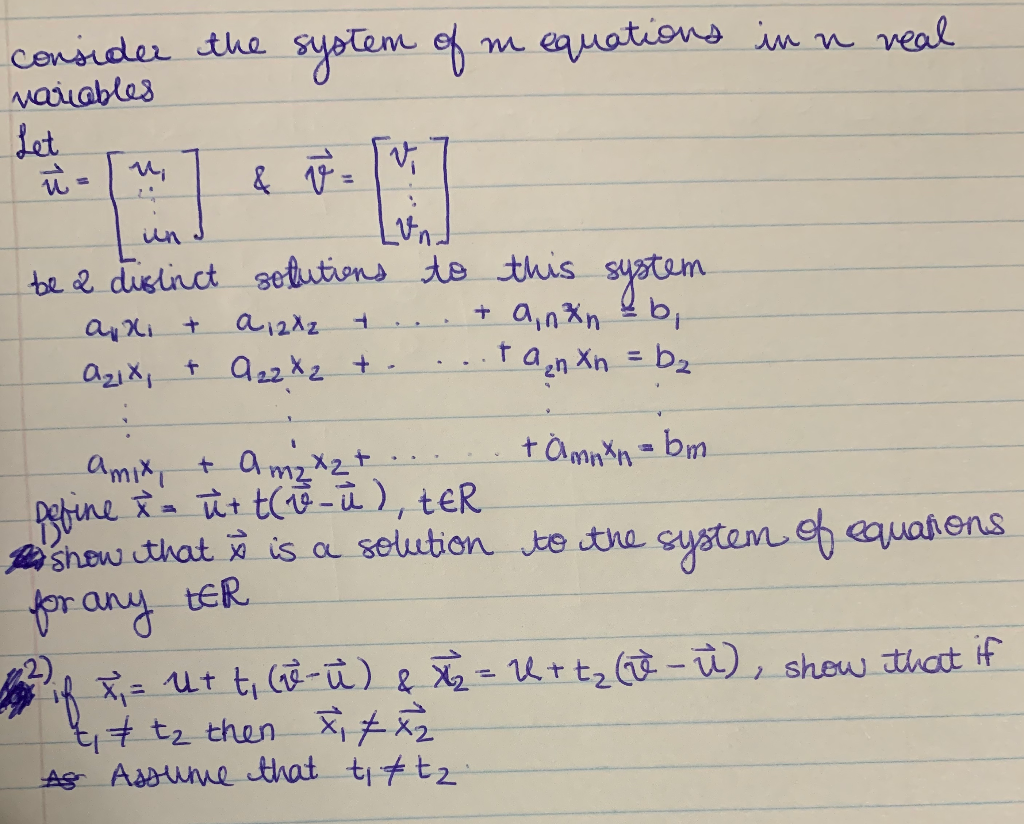 consider the system of m equations in n real
variables
Let
u⃗ = [u₁ ⋮ un] & v⃗ = [v₁ ⋮ vn]
be 2 distinct solutions to this system
a₁₁x₁ + a₁₂x₂ + .... + a₁ₙxₙ = b₁
a₂₁x₁ + a₂₂x₂ + . ... + a₂ₙxₙ = b₂
⋮ ⋮ ⋮ ⋮
aₘ₁x₁ + aₘ₂x₂ + ..... + aₘₙxₙ = bm
Define x⃗ = u⃗ + t(v⃗ - u⃗), t∈R
1) show that x⃗ is a solution to the system of equations
for any t∈R
2) if x⃗₁ = u + t₁(v⃗ - u⃗) & x⃗₂ = u + t₂(v⃗ - u⃗), show that if
t₁ ≠ t₂ then x⃗₁ ≠ x⃗₂
Assume that t₁ ≠ t₂.